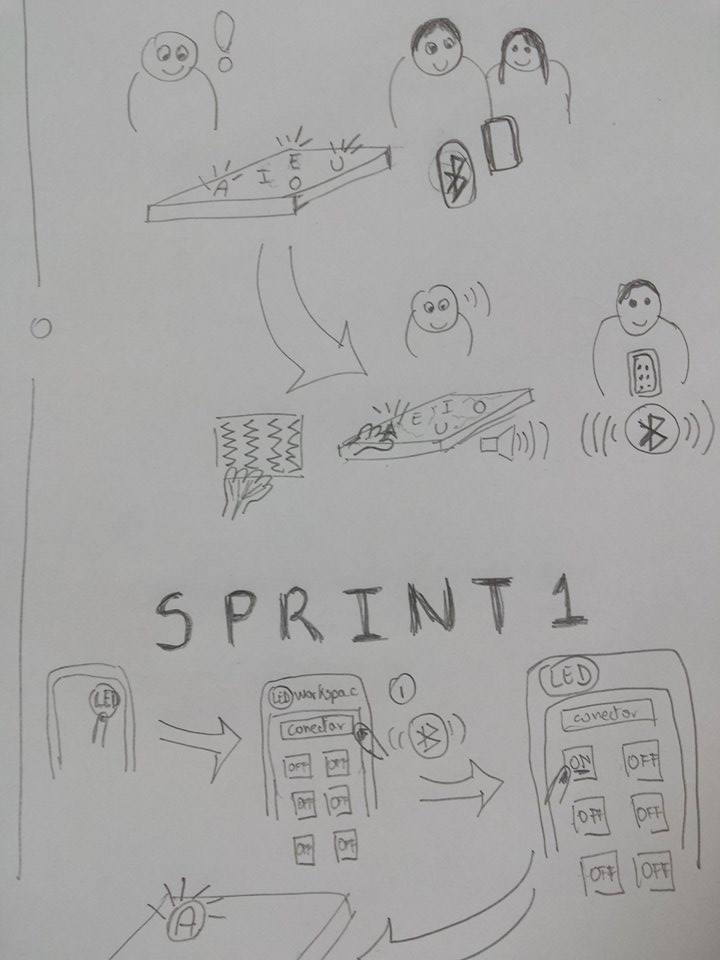 !
A I E O U
A E I U O
SPRINT 1
LED
LED workspac
1
conectar
OFF OFF
OFF OFF
OFF OFF
LED
conectar
ON OFF
OFF OFF
OFF OFF
A